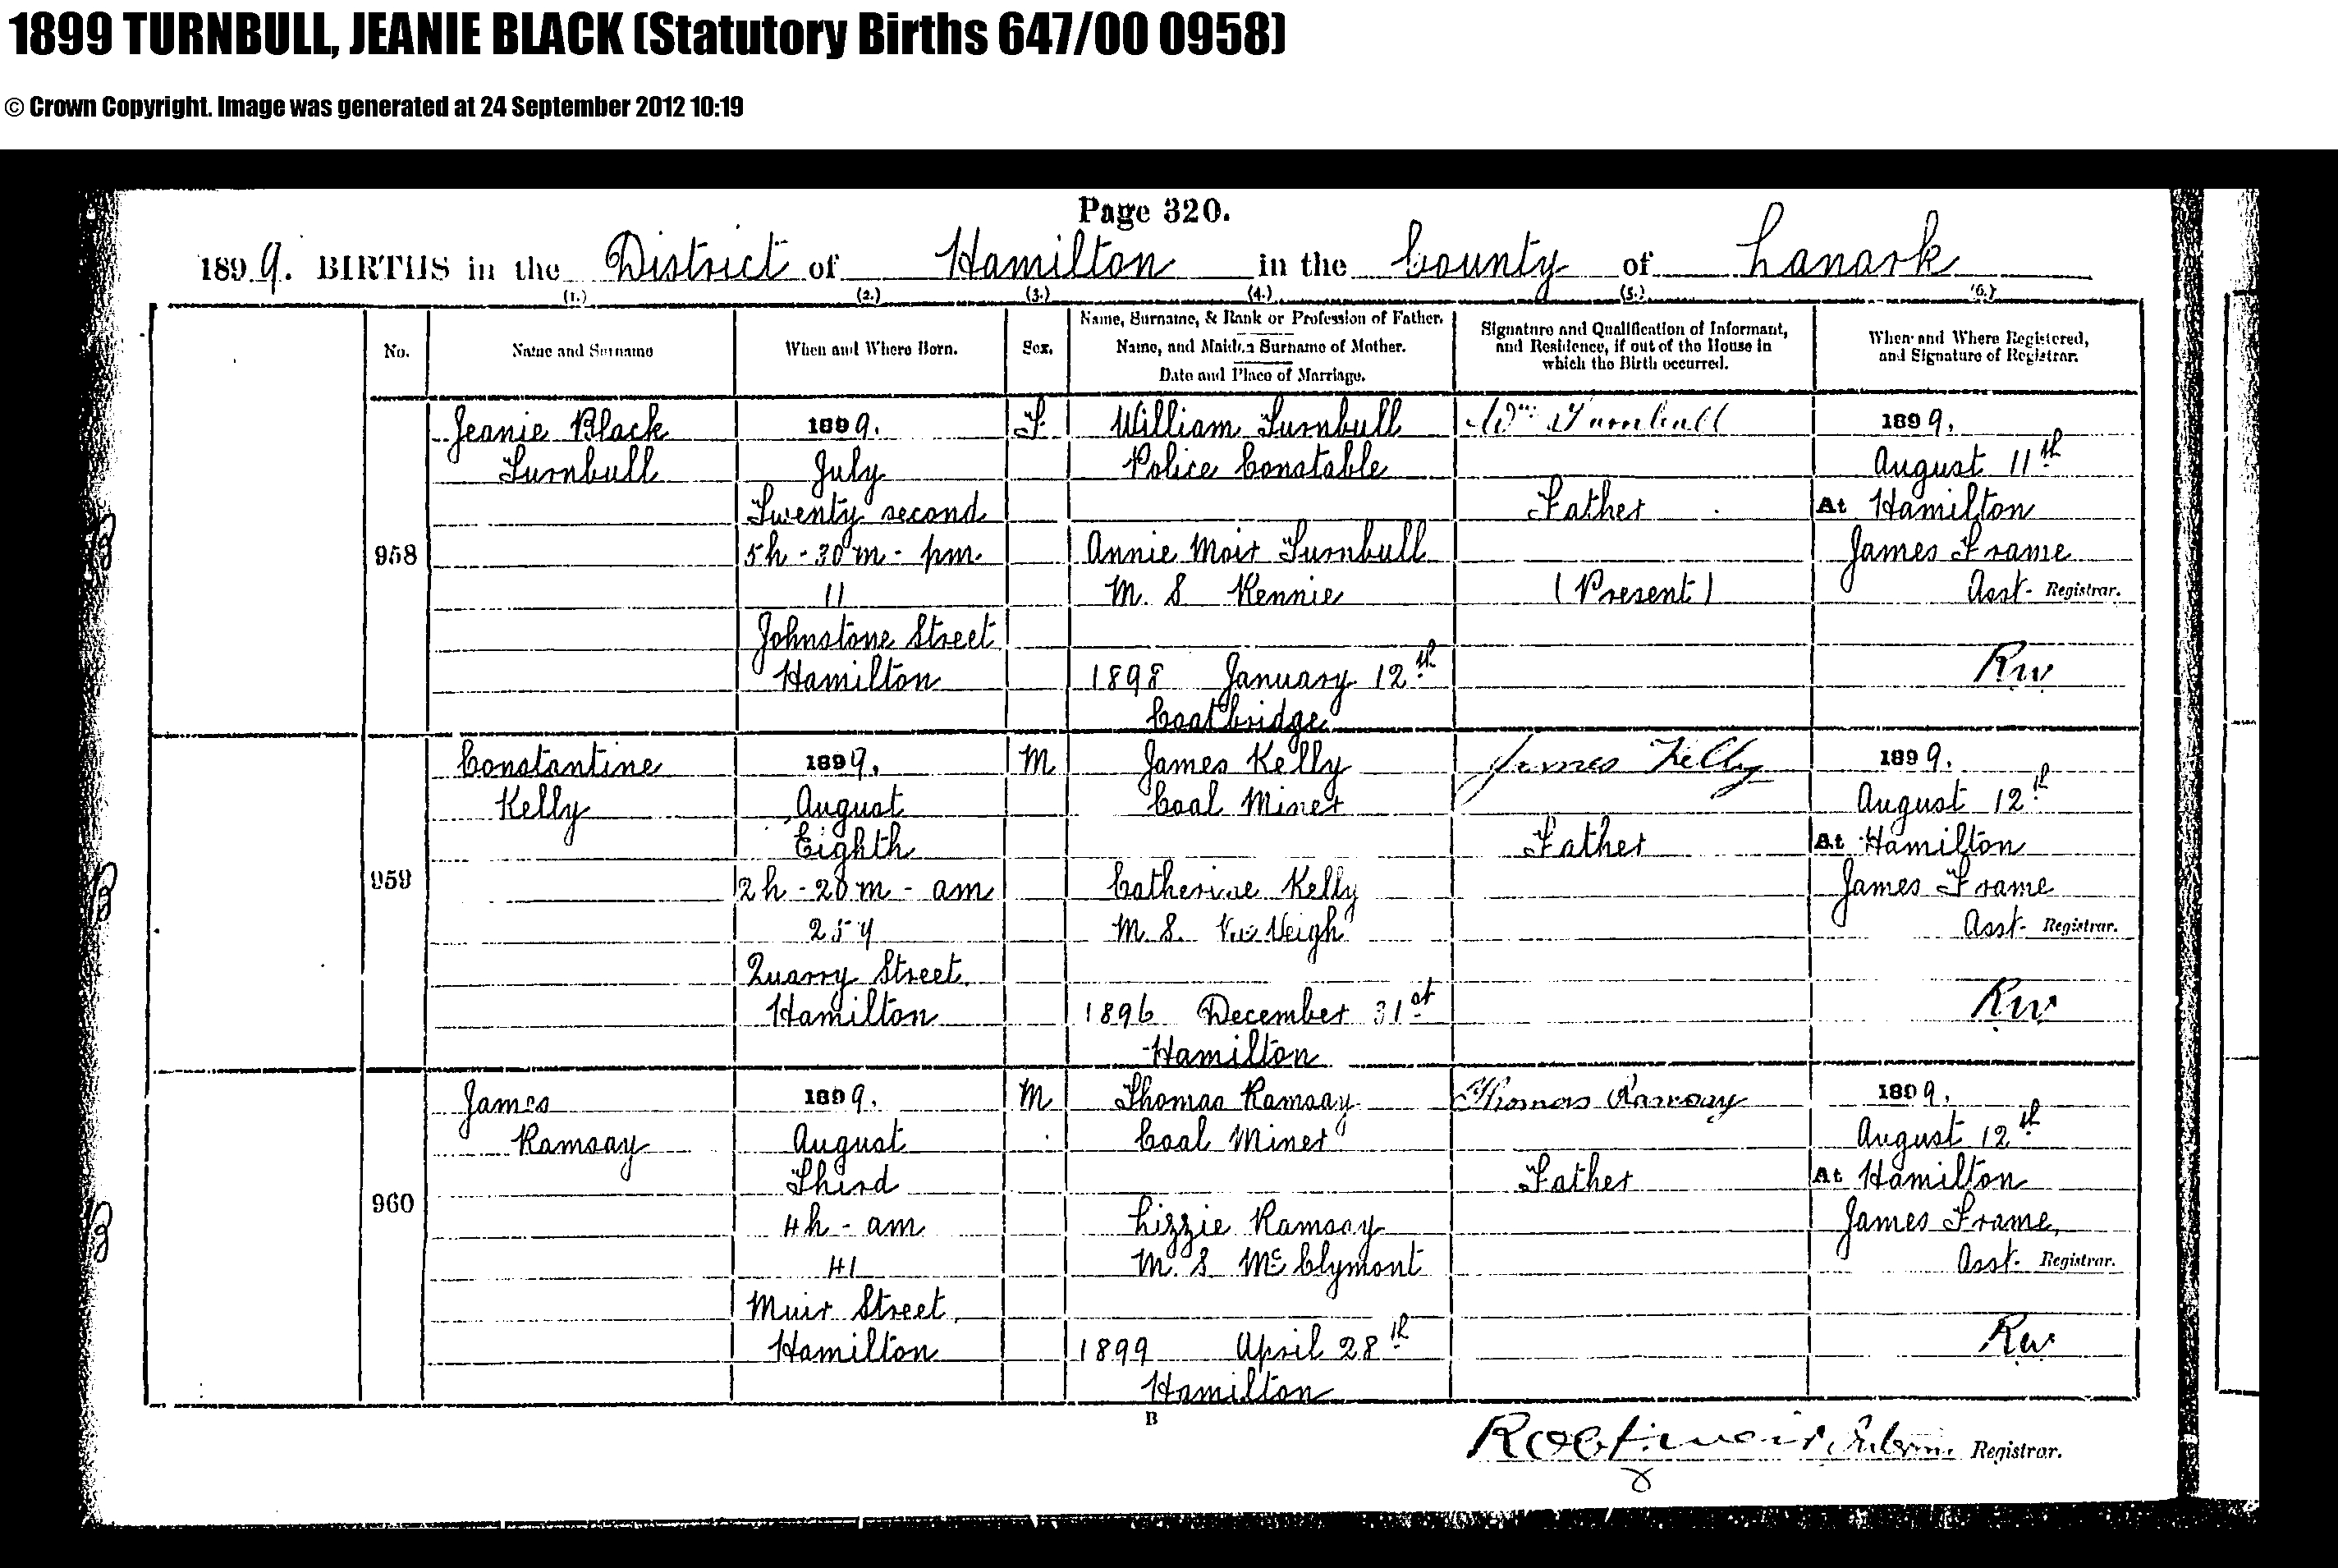 1899 TURNBULL, JEANIE BLACK (Statutory Births 647/00 0958)
© Crown Copyright. Image was generated at 24 September 2012 10:19
Page 320.
1899. BIRTHS in the District of Hamilton in the County of Lanark
(1.) (2.) (3.) (4.) (5.) (6.)
No.
Name and Surname
When and Where Born.
Sex.
Name, Surname, & Rank or Profession of Father.
Name, and Maiden Surname of Mother.
Date and Place of Marriage.
Signature and Qualification of Informant,
and Residence, if out of the House in
which the Birth occurred.
When and Where Registered,
and Signature of Registrar.
958
Jeanie Black
Turnbull
1899.
July
Twenty second
5h - 30m - pm.
11
Johnstone Street
Hamilton
F
William Turnbull
Police Constable
Annie Moir Turnbull
M. S Rennie
1898 January 12th
Coatbridge
Wm Turnbull
Father
(Present)
1899.
August 11th
At Hamilton
James Frame
Asst. Registrar.
RW
959
Constantine
Kelly
1899.
August
Eighth
2h - 20m - am
Quarry Street
Hamilton
M
James Kelly
Coal Miner
Catherine Kelly
M. S.
1896 December 31st
Hamilton
James Kelly
Father
1899.
August 12th
At Hamilton
James Frame
Asst. Registrar.
RW
960
James
Ramsay
1899.
August
Third
4h - am
41
Muir Street
Hamilton
M
Thomas Ramsay
Coal Miner
Lizzie Ramsay
M. S McClymont
1899 April 28th
Hamilton
Thomas Ramsay
Father
1899.
August 12th
At Hamilton
James Frame,
Asst. Registrar.
RW
B
Registrar.